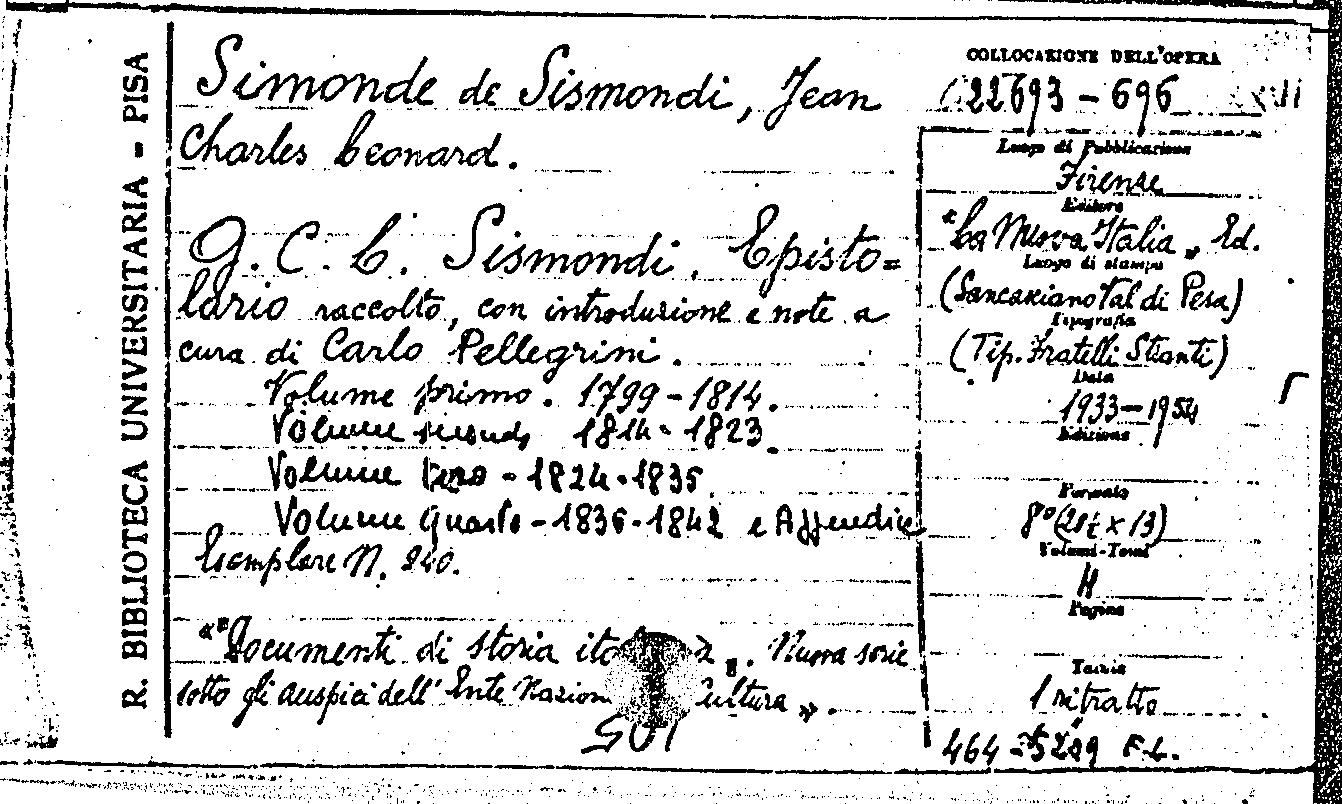 R. BIBLIOTECA UNIVERSITARIA - PISA
Simonde de Sismondi, Jean
Charles Leonard.
G. C. L. Sismondi. Episto=
lario raccolto, con introduzione e note a
cura di Carlo Pellegrini.
Volume primo. 1799-1814.
Volume secondo 1814-1823.
Volume terzo - 1824-1835.
Volume quarto - 1836-1842 e Appendice
Esemplare N. 240.
«"Documenti di storia ". Nuova serie
sotto gli auspici dell'Ente Cultura ».
COLLOCAZIONE DELL'OPERA
22693 - 696
Luogo di Pubblicazione
Firenze
Editore
"La Nuova Italia" Ed.
Luogo di stampa
(Sancasciano Val di Pesa)
Tipografia
(Tip. Fratelli Stianti)
Data
1933-1954
Edizione
Formato
8°
Volumi-Tomi
4
Pagine
Tavole
1 ritratto
F.L.